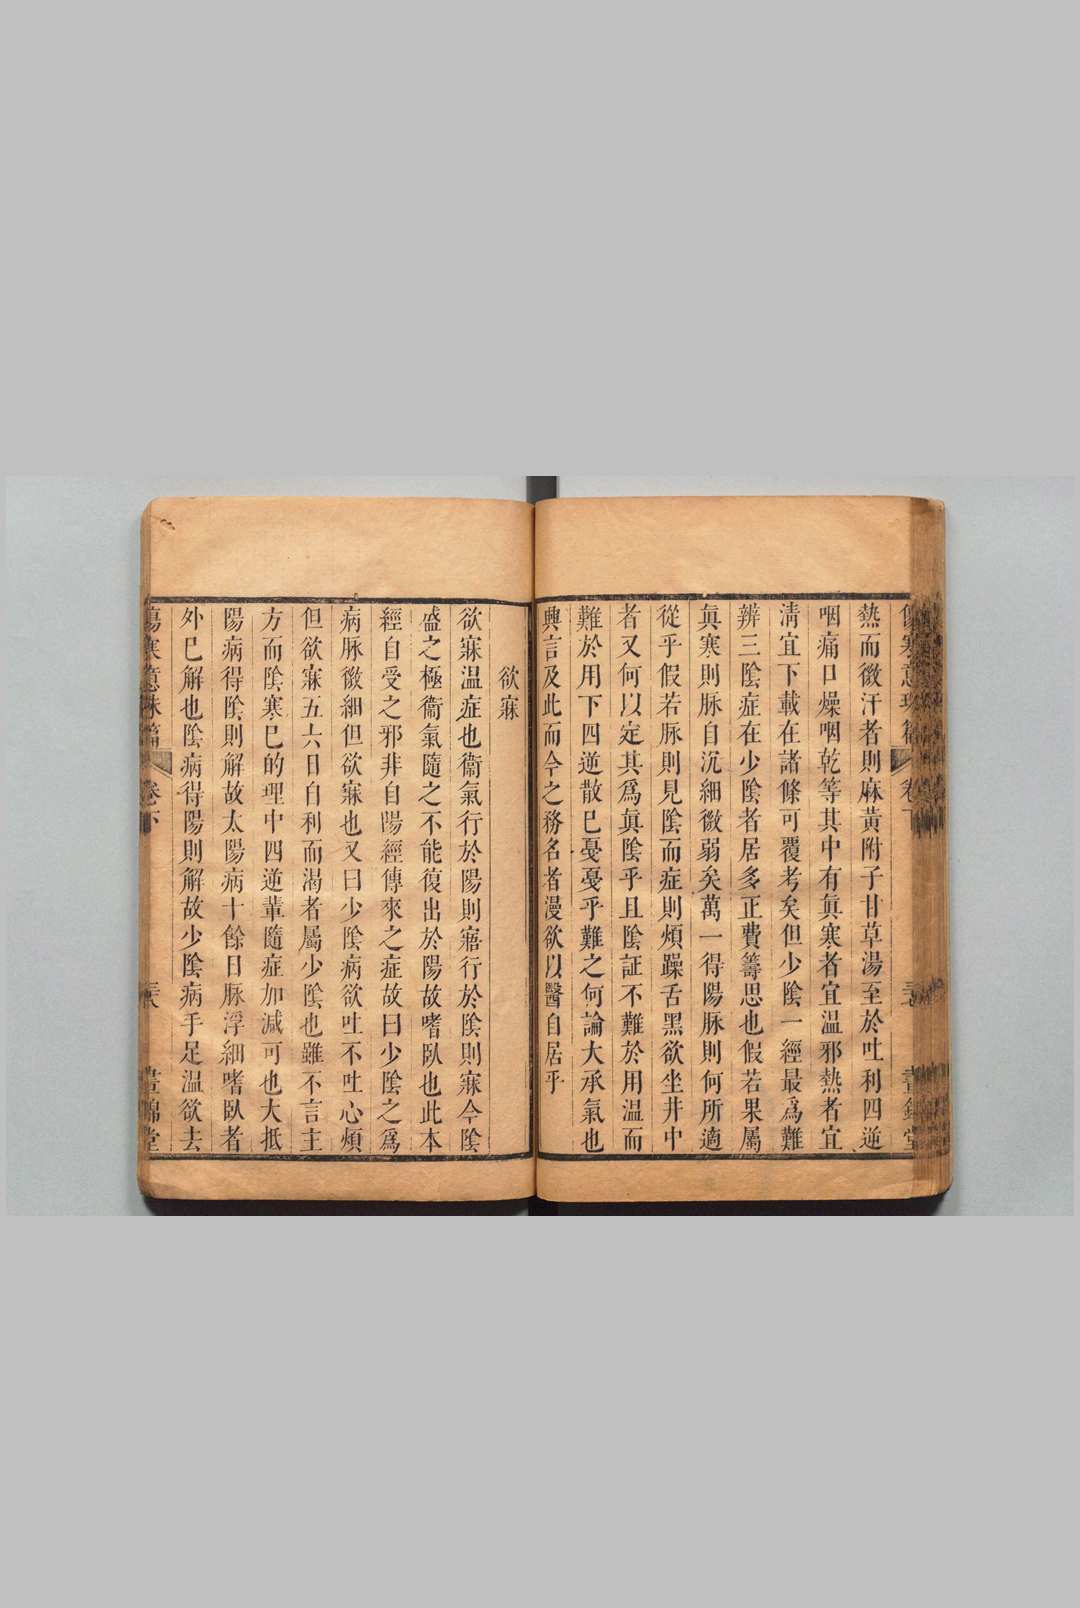 傷寒意珠篇 卷下 晝錦堂
熱而微汗者則麻黃附子甘草湯至於吐利四逆
咽痛口燥咽乾等其中有眞寒者宜温邪熱者宜
淸宜下載在諸條可覆考矣但少隂一經最爲難
辨三隂症在少隂者居多正費籌思也假若果屬
眞寒則脉自沉細微弱矣萬一得陽脉則何所適
從乎假若脉則見隂而症則煩躁舌黑欲坐井中
者又何以定其爲眞隂乎且隂証不難於用温而
難於用下四逆散巳憂憂乎難之何論大承氣也
興言及此而今之務名者漫欲以醫自居乎
欲寐
欲寐温症也衞氣行於陽則寤行於隂則寐今隂
盛之極衞氣隨之不能復出於陽故嗜臥也此本
經自受之邪非自陽經傳來之症故曰少隂之爲
病脉微細但欲寐也又曰少隂病欲吐不吐心煩
但欲寐五六日自利而渴者屬少隂也雖不言主
方而隂寒巳的理中四逆輩隨症加減可也大抵
陽病得隂則解故太陽病十餘日脉浮細嗜臥者
外巳解也隂病得陽則解故少隂病手足温欲去
傷寒意珠篇 卷下 晝錦堂